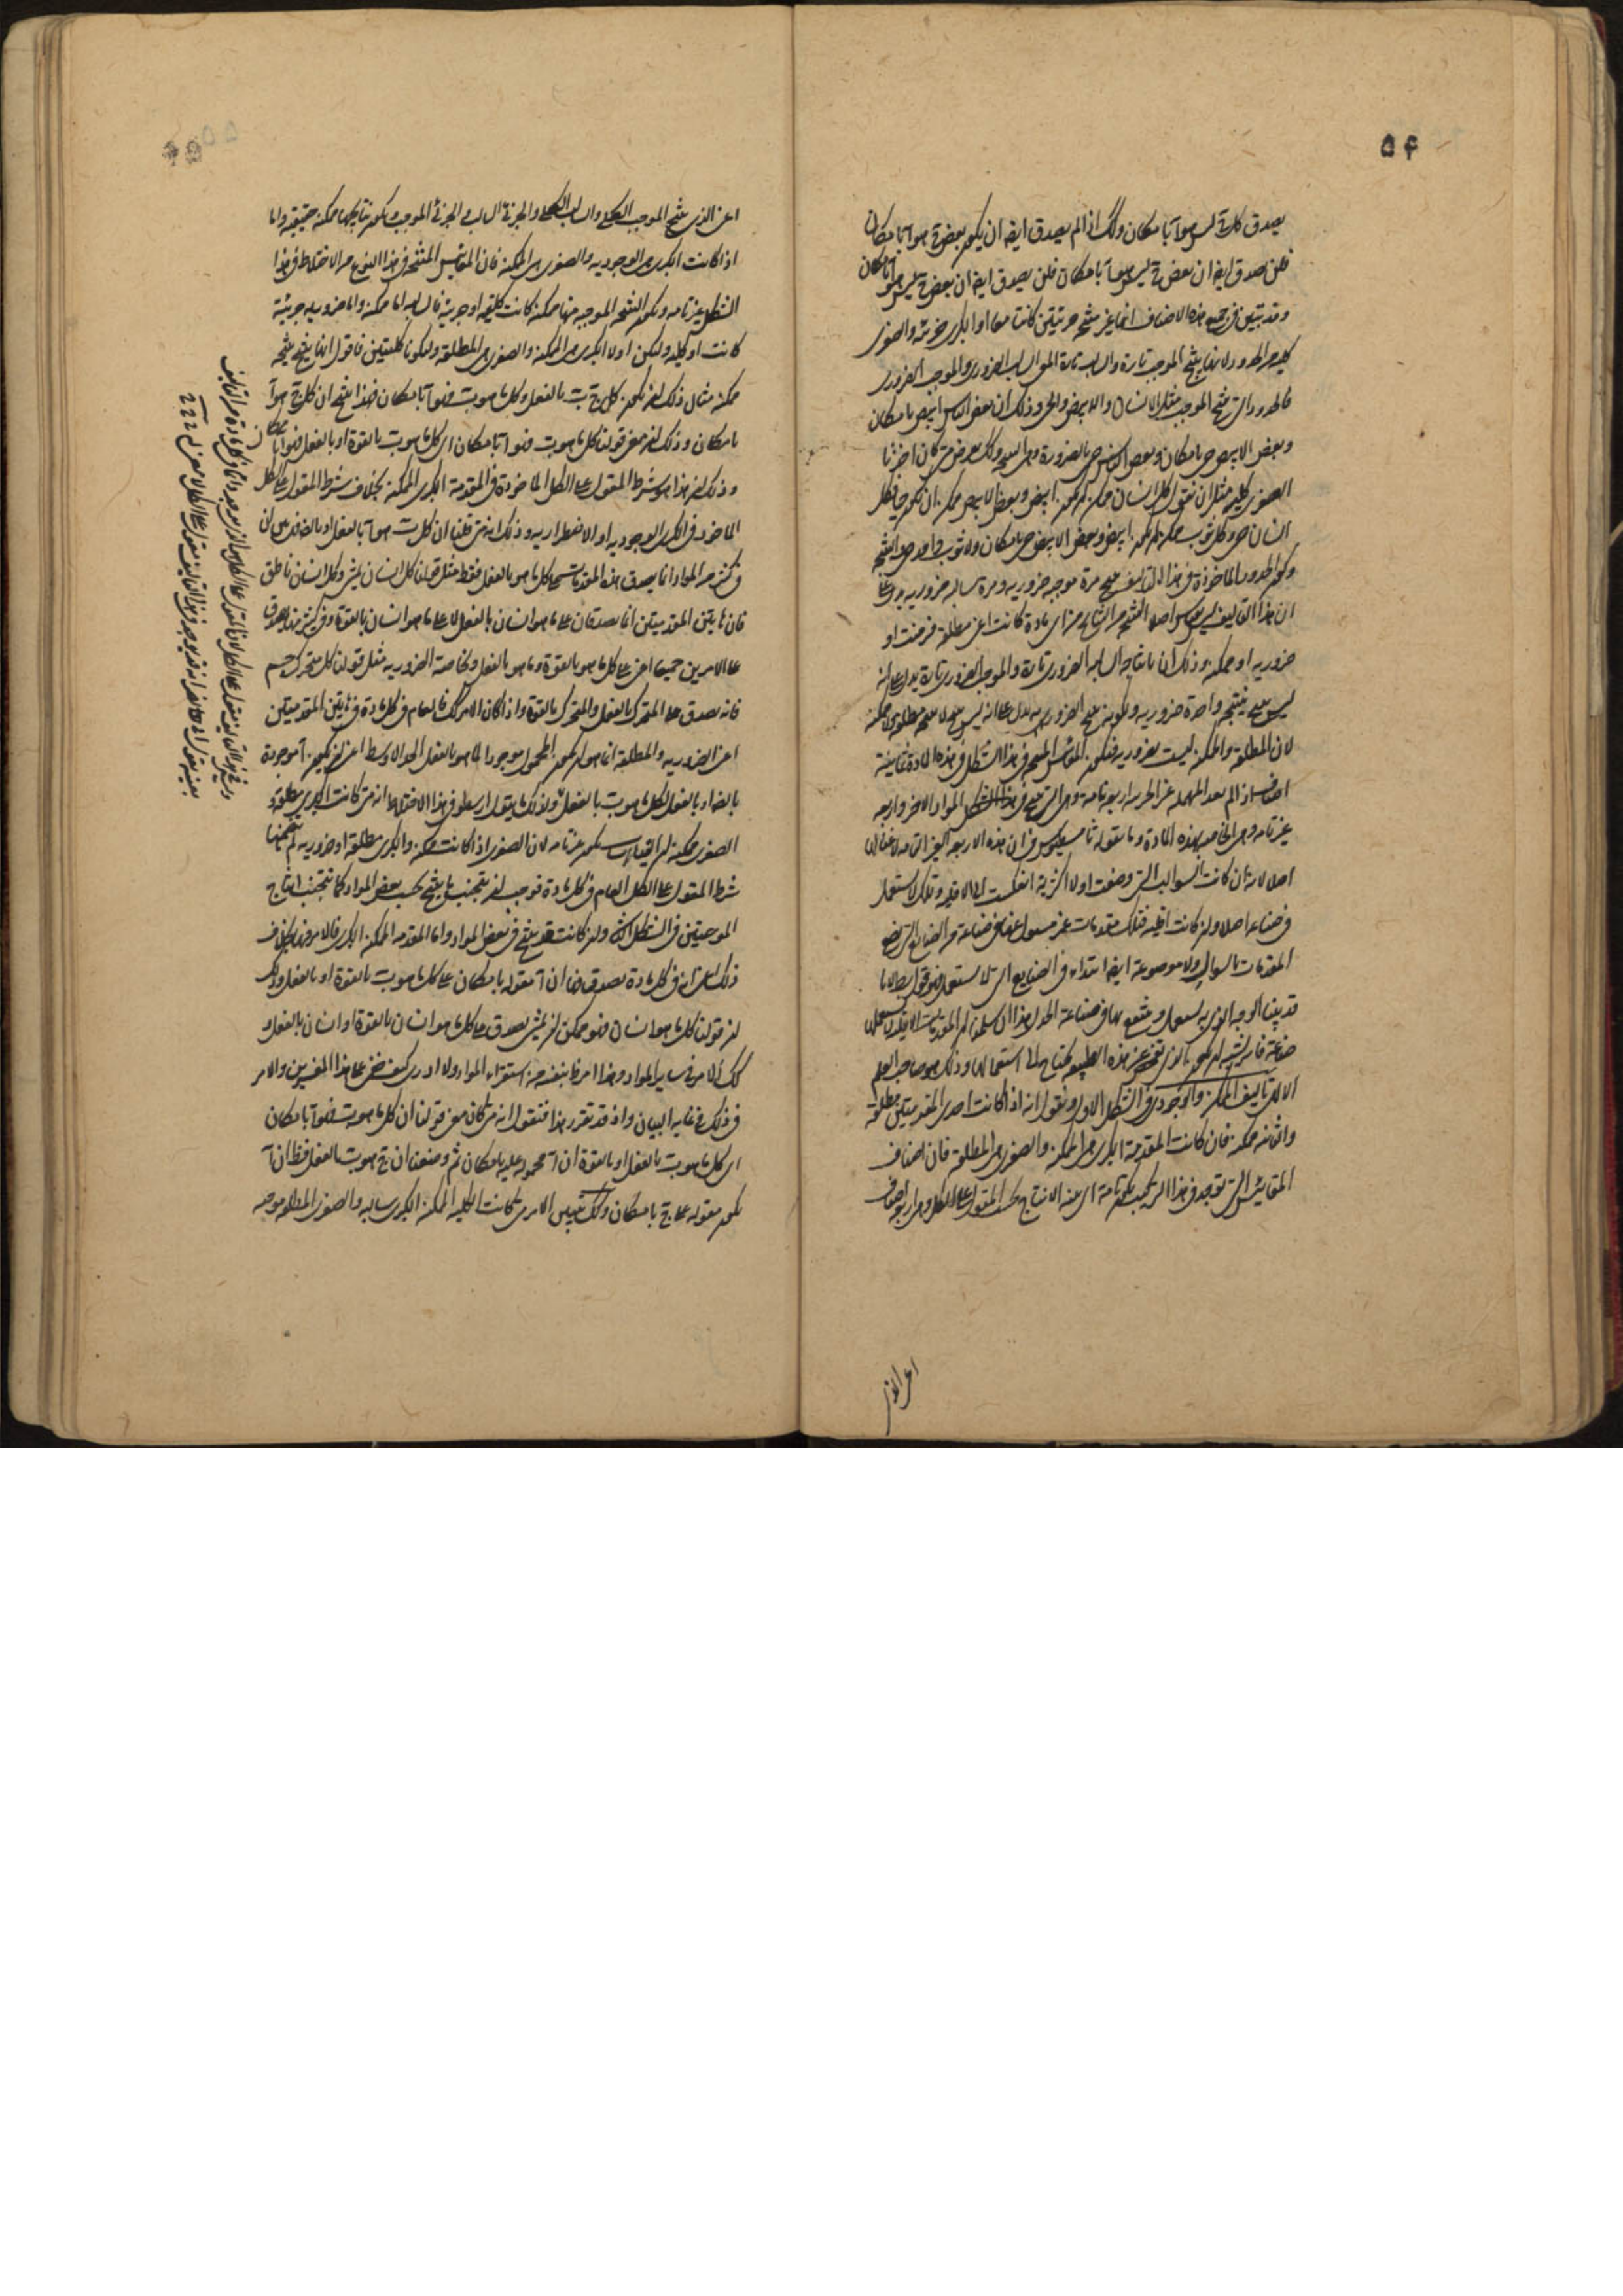 ٥٤
يصدق كل ج ليس هو آ بامكان ولك اذا لم يصدق ايضه ان يكون بعض ج هو آ بامكان
فلن صدق ايضه ان بعض ج ليس هو آ بامكان فلن يصدق ايضه ان بعض ج ليس هو آ بامكان
وقد تبين فى جميع هذه الاصناف انها غير منتجه جزئيتين كانتا معا او الكبرى جزئيه والصغرى
كليه من الحدود لانها ينتج الموجب تارة والسالب تارة السالب الضرورى والموجب الضرورى
فالحدود التى تنتج الموجب مثل الانسان والابيض والحى وذلك ان بعض الناس ابيض بامكان
وبعض الابيض حى بامكان وبعض الناس حى بالضرورة
الصغرى كليه مثل ان نقول كل انسان ممكن ان يكون ابيض وبعض الابيض ممكن ان يكون حيا فكل
انسان حى وكل ثوب ممكن ان يكون ابيض وبعض الابيض حى بامكان ولا ثوب واحد حى
وكون الحدود الماخوذة فى هذا التاليف ينتج مرة موجبه ضروريه ومرة سالبه ضروريه يدل على
ان هذا التاليف ليس بقياس اصلا لنتيجه من النتايج من اى مادة كانت اعنى مطلقة فرضت او
ضروريه او ممكنه وذلك ان انتاجه السالبه الضرورى تارة والموجبه الضرورى تارة يدل على انه
ليس ينتج نتيجه واحدة ضروريه وكونه ينتج الضرورى يدل على انه ليس ينتج لا مطلقه ولا ممكنه
لان المطلقة والممكنه ليست بضروريه فتكون المقاييس المنتجه فى هذا الشكل فى هذه المادة ثمانية
اصناف اذا لم نعد المهمله غير الجزئيه اربعه تامة وهى التى تنتج فى هذا الشكل المواد الاخر واربعه
غير تامه وهى الخاصه بهذه المادة وما يقوله ثامسطيوس من ان هذه الاربعه الغير التامه لا غناء لها
اصلا لانه ان كانت السوالب التى وضعت اولا اكثرية انعكست الى الاقليه وتلك لا تستعمل
فى صناعه اصلا وان كانت اقليه فتلك مقدمات غير مسؤول عنها فى صناعة من الصنايع التى تضع
المقدمات بالسوال ولا موضوعة ايضه ابتداء فى الصنايع التى لا تستعمل السوال فهو قول باطل لانا
قد بينا الوجه الذى به يستعمل وينتفع بها فى صناعة الجدل هذا ان سلمنا ان المقدمات الاقليه لا تستعملها
صناعة فانه يشبه ان يكون بالذى تفحص عن هذه الطبيعه يحتاج الى استعمالها وذلك هو صاحب العلم
الالهى تاليف الممكن والوجودى فى الشكل الاول ونقول انه اذا كانت احدى المقدمتين مطلقة
والثانيه ممكنه فان كانت المقدمة الكبرى هى الممكنه والصغرى هى المطلقة فان اصناف
المقاييس التى توجد فى هذا التركيب تكون تامة اى بينه الانتاج بحسب المقول على الكل وهى اربعه اصناف
اعنى الذى
اعنى الذى ينتج الموجب الكلى والسالب الكلى والجزئى السالب والجزئى الموجب وتكون نتايجها ممكنه حقيقيه واما
اذا كانت الكبرى هى الوجوديه والصغرى هى الممكنه فان المقاييس المنتجه فى هذا النوع من الاختلاط فى هذا
الشكل غير تامه وتكون النتيجه الموجبه منها ممكنه كانت كلية او جزئية فالسالبه اما ممكنه واما ضروريه جزئية
كانت او كليه وليكن اولا الكبرى هى الممكنه والصغرى هى المطلقة وليكونا كليتين فاقول انها ينتج نتيجه
ممكنه مثال ذلك ان يكون كل ج ب بالفعل وكل ما هو ب فهو آ بامكان فهذا ينتج ان كل ج هو آ
بامكان وذلك ان معنى قولنا كل ما هو ب فهو آ بامكان اى كل ما هو ب بالقوة او بالفعل فهو آ بامكان
وذلك ان هذا هو شرط المقول على الكل الماخوذة فى المقدمة الكبرى الممكنه بخلاف شرط المقول على الكل
الماخوذ فى الكبرى الوجوديه او الاضطراريه وذلك انه متى قلنا ان كل ب هو آ بالفعل او بالضروره
فى كثير من المواد انما يصدق هذه المقدمات على كل ما هو بالفعل فقط مثل قولنا كل انسان يمشى وكل انسان ناطق
فان هاتين المقدمتين انما يصدقان على ما هو انسان بالفعل لا على ما هو انسان بالقوة وفى كثير منها يصدق
على الامرين جميعا اعنى على كل ما هو بالقوة وما هو بالفعل وبخاصة الضروريه مثل قولنا كل متحرك جسم
فانه يصدق على المتحرك بالفعل والمتحرك بالقوة واذا كان الامر كك فالعام فى كل مادة فى هاتين المقدمتين
اعنى الضروريه والمطلقة انما هو ان يكون المحمول موجودا لما هو بالفعل الحد الاوسط اعنى ان يكون آ موجودة
بالضرورة او بالفعل لكل ما هو ب بالفعل ولذلك يقول ارسطو فى هذا الاختلاط انه متى كانت الكبرى مطلقة و
الصغرى ممكنه ان القياس يكون غير تامه لان الصغرى اذا كانت ممكنه والكبرى مطلقة او ضروريه لم يتضمنها
شرط المقول على الكل العام فى كل مادة فوجب ان يتجنب ما ينتج بحسب بعض المواد كما يتجنب انتاج
الموجبتين فى الشكل الثانى وان كانت قد ينتج فى بعض المواد واما المقدمه الممكنه الكبرى فالامر فيها بخلاف
ذلك اعنى انه فى كل مادة يصدق فيها ان آ مقوله بامكان على كل ما هو ب بالقوة او بالفعل وذلك
ان قولنا كل ما هو انسان فهو ممكن ان يمشى يصدق على كل ما هو انسان بالقوة او انسان بالفعل و
كك الامر فى ساير المواد وهذا امر ظاهر بنفسه من استقراء المواد ولا ادرى كيف خفى على هذا المفسرين والامر
فى ذلك فى غايه البيان واذ قد تقرر هذا فنقول انه متى كان معنى قولنا ان كل ما هو ب فهو آ بامكان
اى كل ما هو ب بالفعل او بالقوة ان آ محمولة عليه بامكان ثم وضعنا ان ج هو ب بالفعل فظ ان آ
يكون مقوله على ج بامكان وكك تبين الامر متى كانت الكليه الممكنه الكبرى سالبه والصغرى المطلقه موجبه